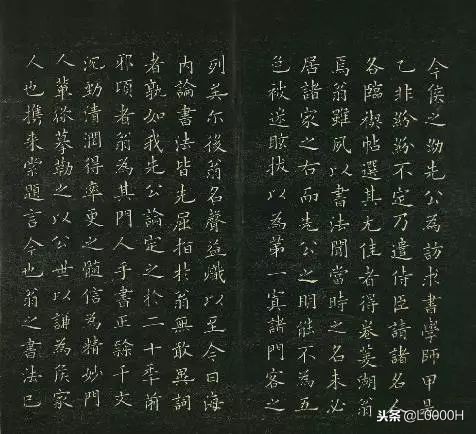 今侯之幼先公為訪求書學師甲是
乙非紛紛不定乃遣侍臣請諸名人
各臨禊帖選其尤佳者得卷菱湖翁
焉翁雖夙以書法聞當時之名未必
居諸家之右而先公之明能不為五
色被迷眩拔以為第一寘諸門客之
列矣尔後翁名聲益熾以至今日海
內論書法皆先屈指於翁無敢異詞
者歟如我先公論定之於二十年前
邪頃者翁為其門人手書正隸千文
沉勁清潤得率更之髓信為精妙門
人摹勒之以公世以謙為侯家
人也携来索題言今也翁之書法已
头条 @L0000H